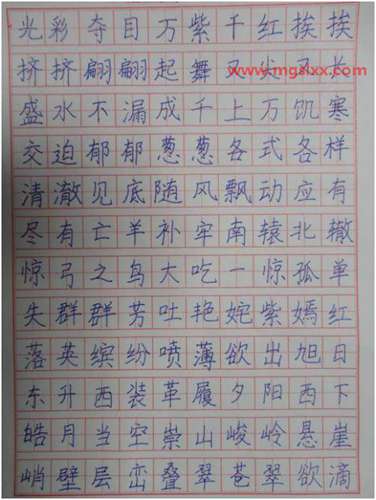 光彩夺目万紫千红挨挨
挤挤翩翩起舞又尖又长
www.mgslxx.com
盛水不漏成千上万饥寒
交迫郁郁葱葱各式各样
清澈见底随风飘动应有
尽有亡羊补牢南辕北辙
惊弓之鸟大吃一惊孤单
失群群芳吐艳姹紫嫣红
落英缤纷喷薄欲出旭日
东升西装革履夕阳西下
皓月当空崇山峻岭悬崖
峭壁层峦叠翠苍翠欲滴